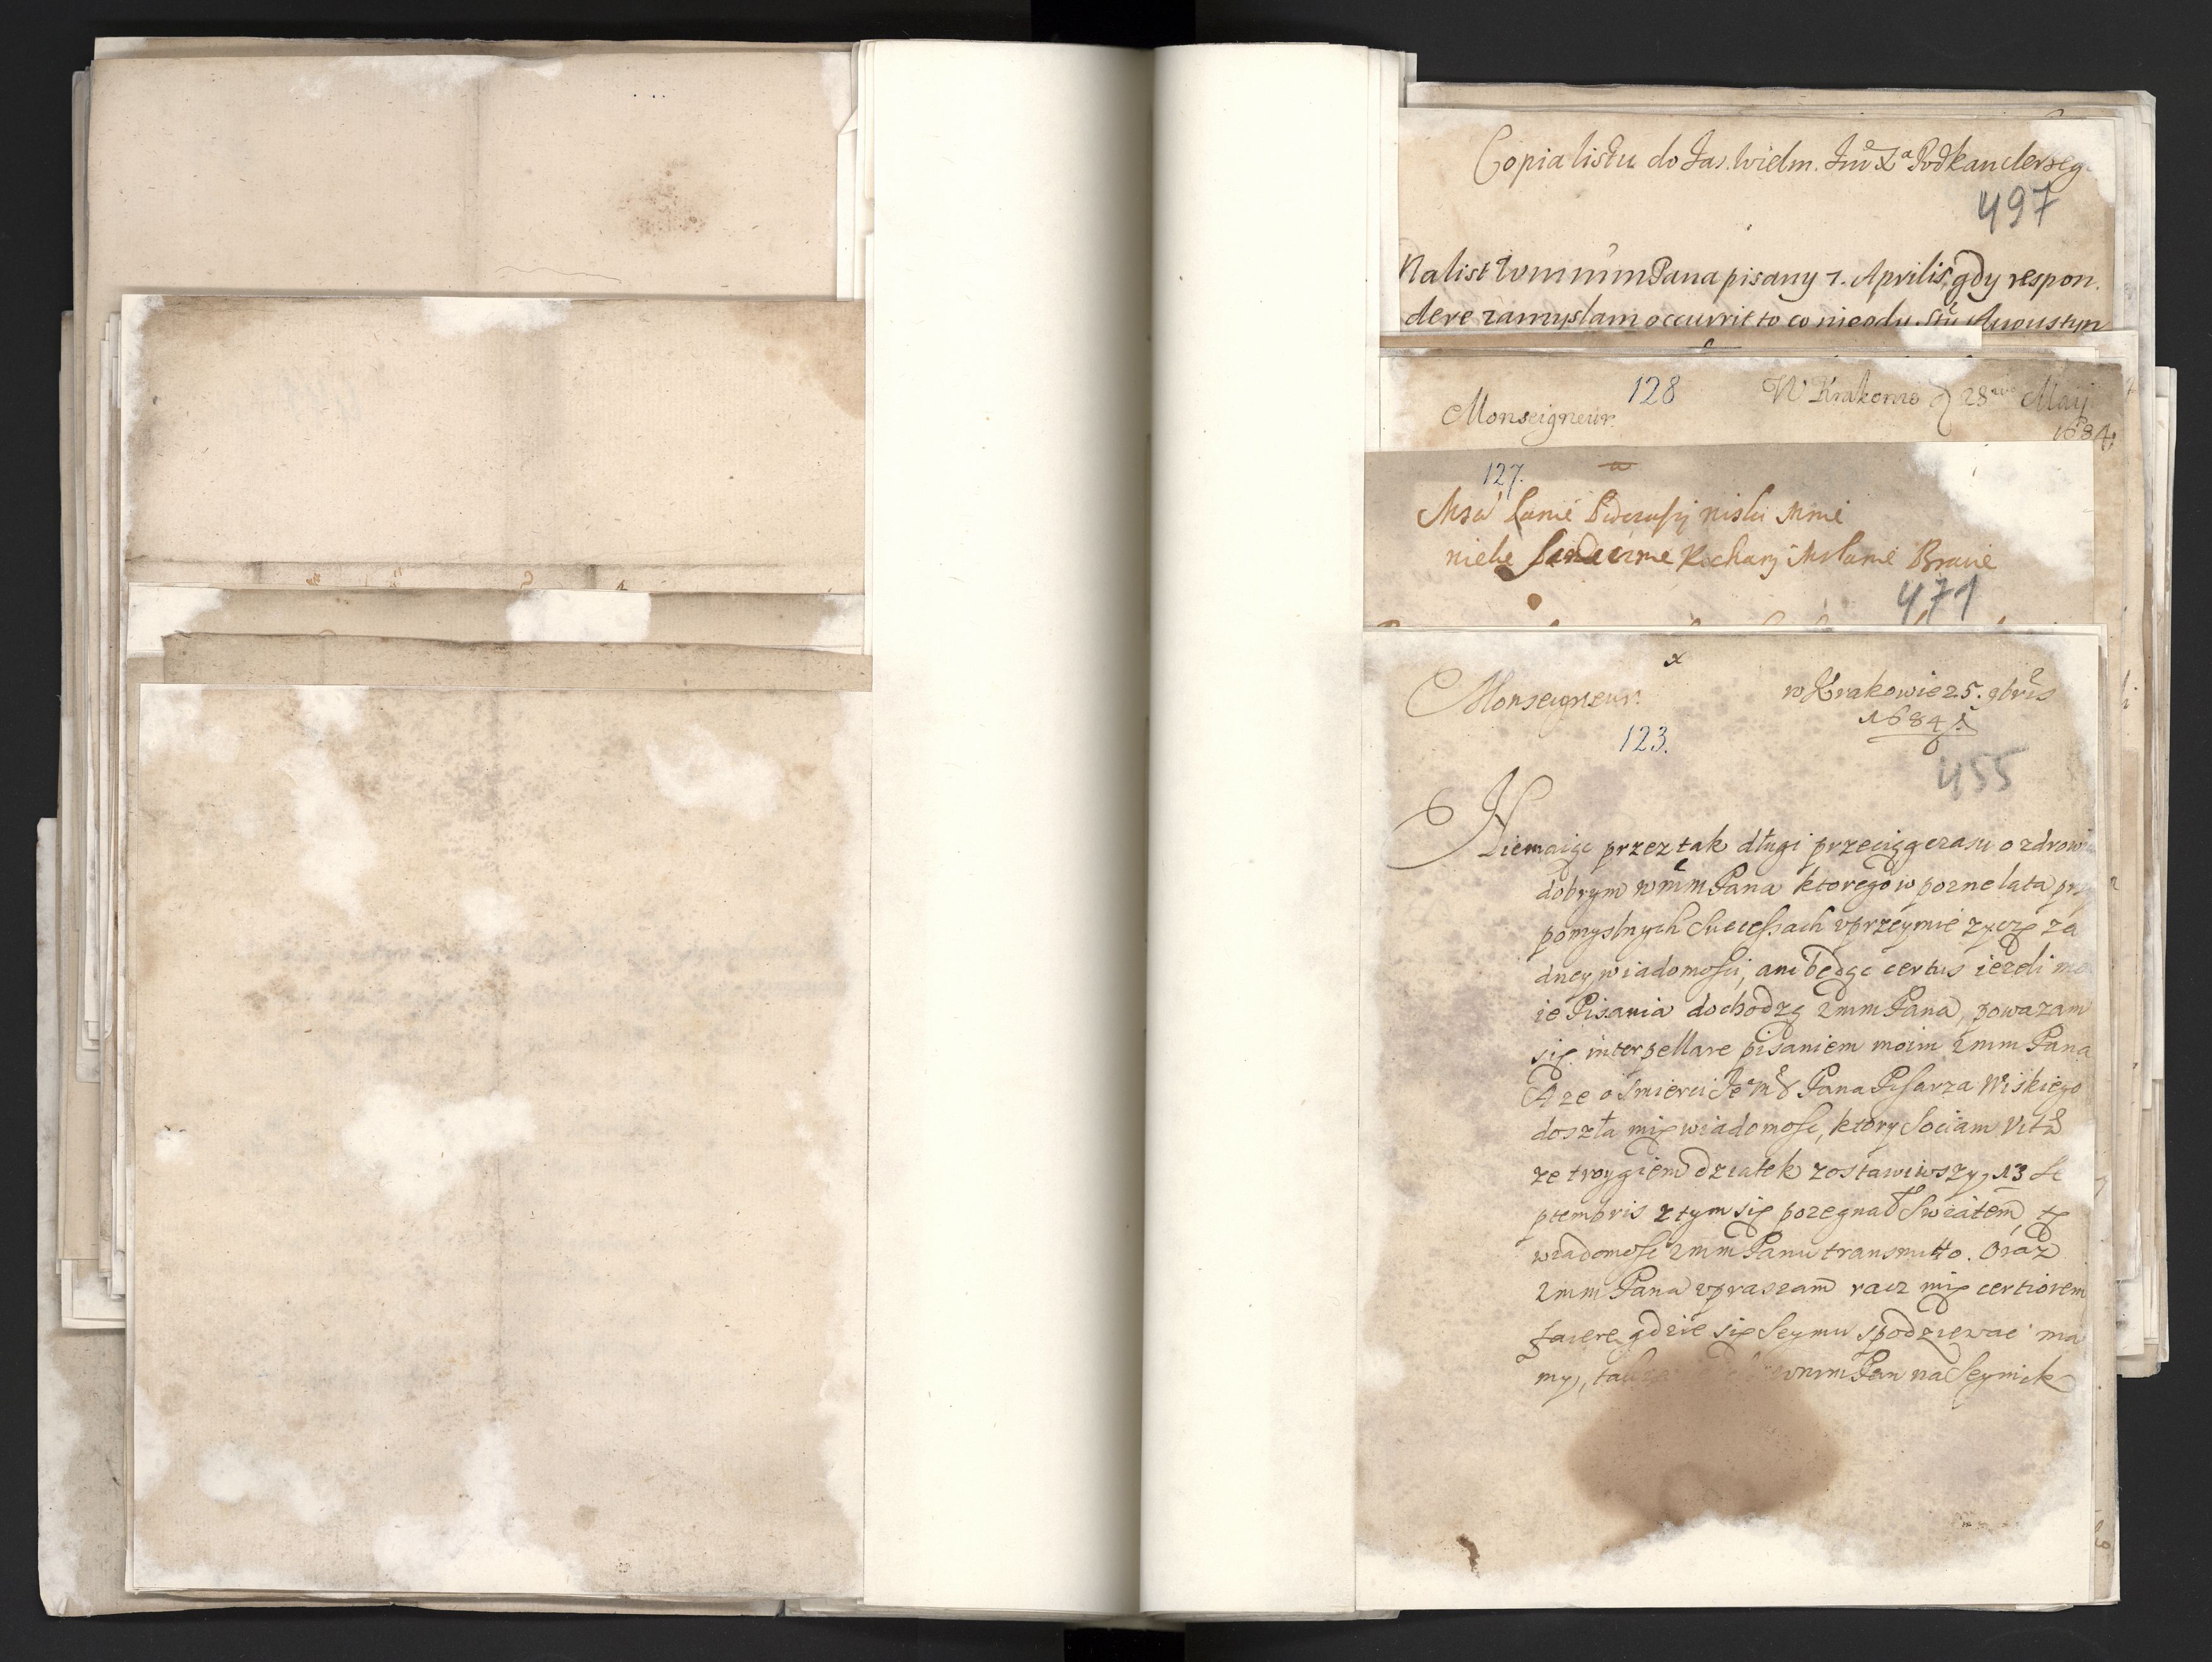 Copia listu do Jas. Wielm. Im X Podkanclerzeg
497
Na list Wmm Pana pisany 7. Aprilis, gdy respon.
dere zamyslam occurrit to co niegdy Stu Augustyn
128
W Krakowie d 28 Maij
Monseigneur.
1684
127.
Kochany Bracie
471
x
Monseigneur.
w Krakowie 25. 9bris
1684
123.
455
Niemaiąc przez tak długi przeciąg czasu o zdrow
dobrym wmm Pana ktorego w pozne lata prz
pomyslnych Successach vprzeymie zyczę za
dney wiadomości, ani będąc certus iezeli mo
ie Pisania dochodzą wmm Pana, powazam
się interpellare pisaniem moim wmm Pana
A ze o smierci Pana Pisarza Wiskiego
doszła mię wiadomosc, ktory Sociam Vitæ
ze troygiem dziatek zostawiwszy, 13 Se
ptembris z tym się pozegnał Swiatem, tę
wiadomosc wmm Panu transmitto. Oraz
wmm Pana vpraszam racz mię certiorem
facere gdzie się Seymu spodziewac ma
my, wmm Pan na Seymik